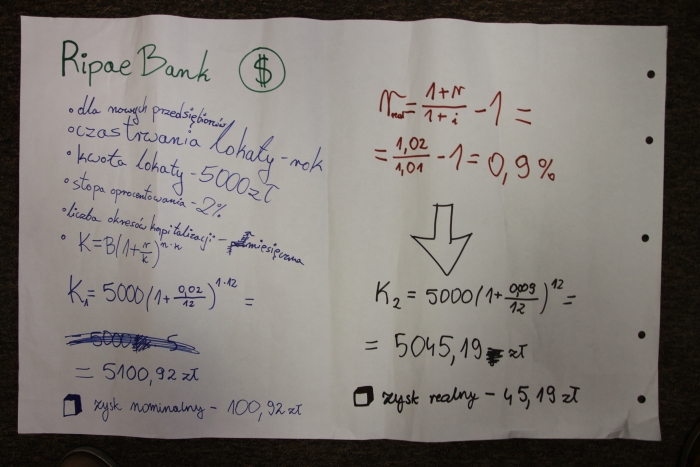 Ripae Bank $
• dla nowych przedsiębiorców
• czas trwania lokaty - rok
• kwota lokaty - 5000 zł
• stopa oprocentowania - 2%
• liczba okresów kapitalizacji - miesięczna
• K = B(1 + r/k)^n·k
K₁ = 5000(1 + 0,02/12)^1·12 =
= 5100,92 zł
zysk nominalny - 100,92 zł
r real = 1+r/1+i - 1 =
= 1,02/1,01 - 1 = 0,9%
K₂ = 5000(1 + 0,009/12)^12 =
= 5045,19 zł
zysk realny - 45,19 zł